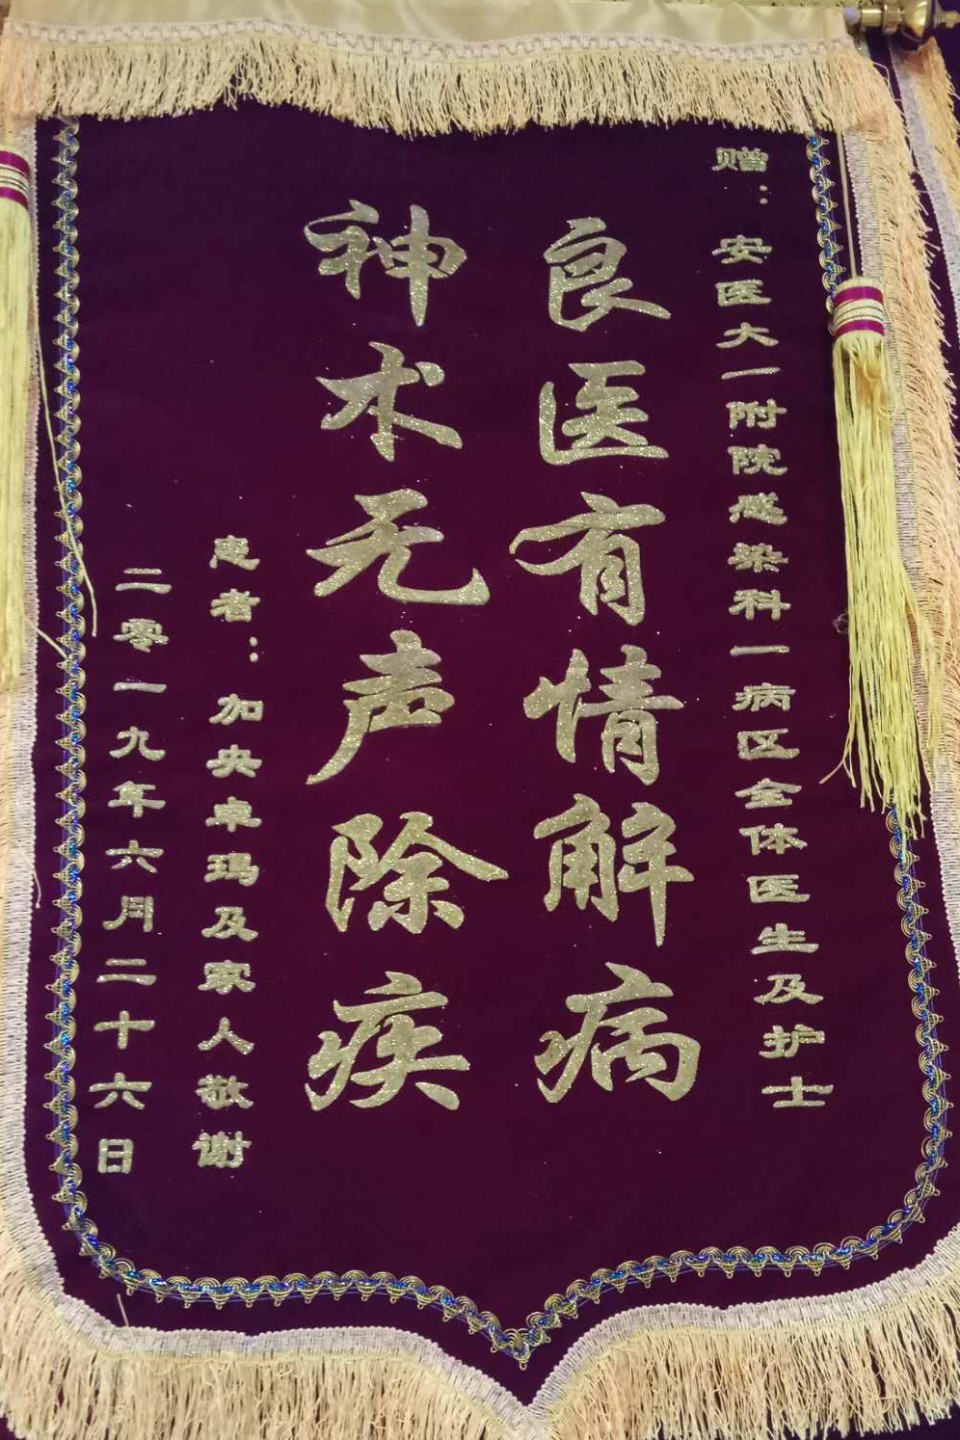 赠：安医大一附院感染科一病区全体医生及护士
良医有情解病
神术无声除疾
患者：加央卓玛及家人敬谢
二零一九年六月二十六日